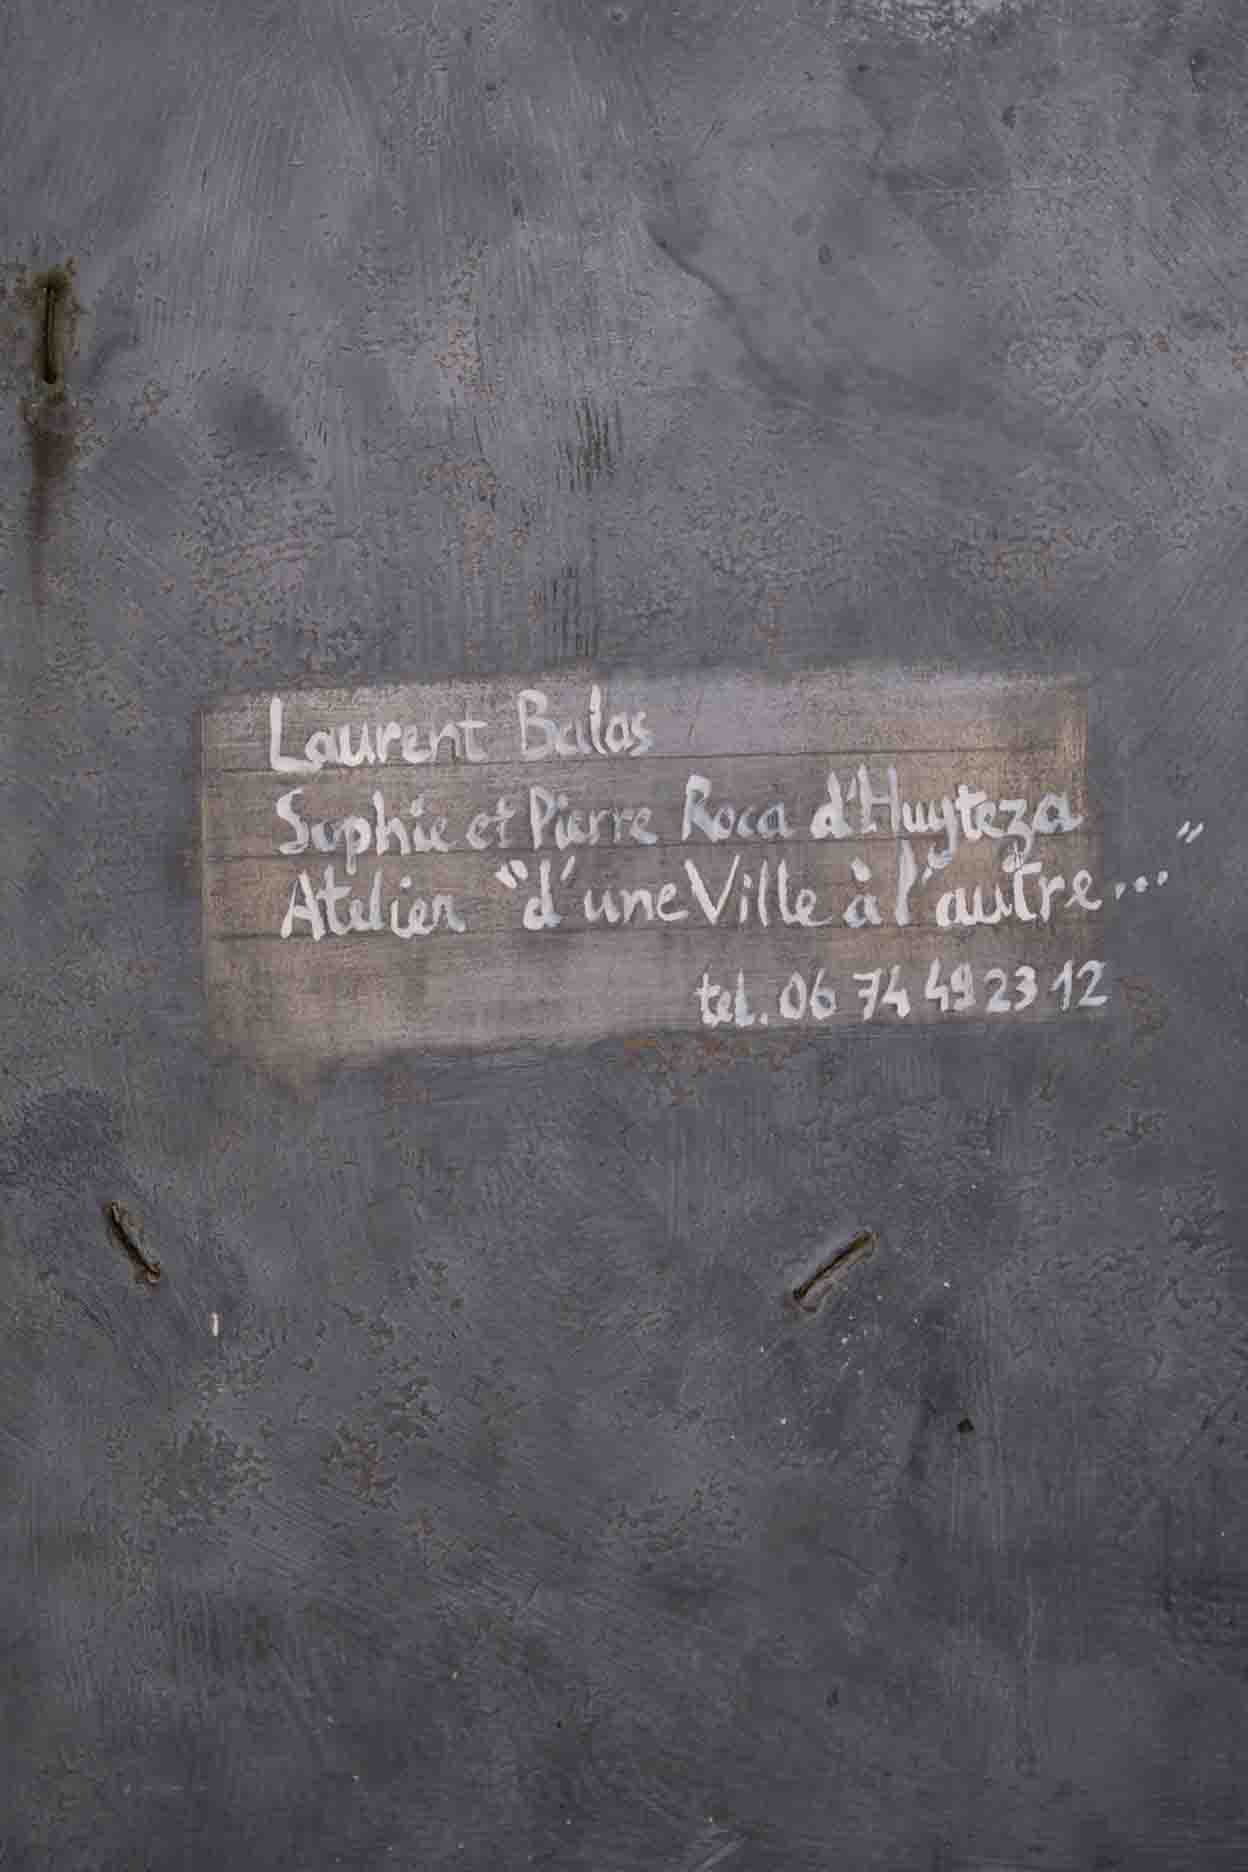 Laurent Balas
Sophie et Pierre Roca d'Huyteza
Atelier "d'une Ville à l'autre..."
tel. 06 74 49 23 12